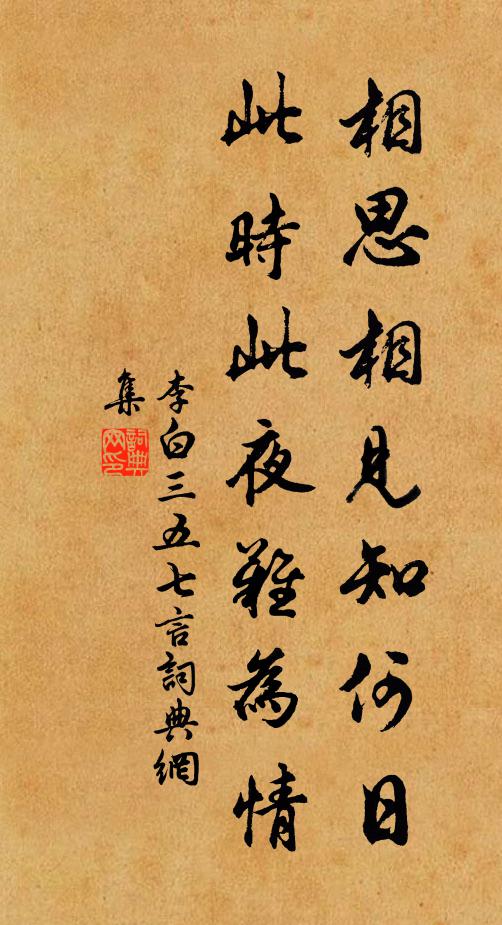 相思相見知何日
此時此夜難為情
李白三五七言詞典網
集
詞典網印